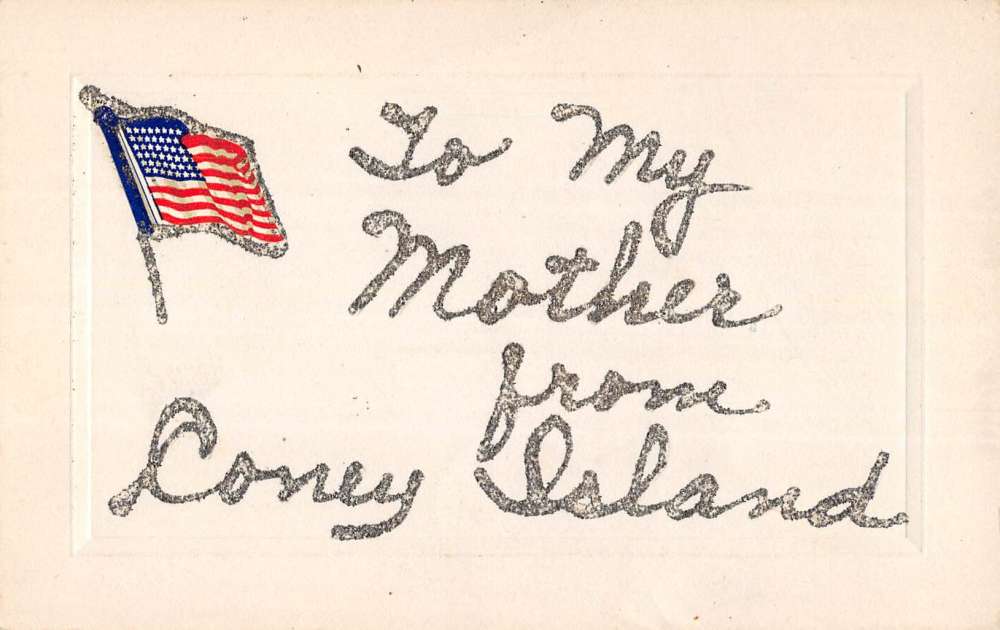 To My
Mother
from
Coney Island